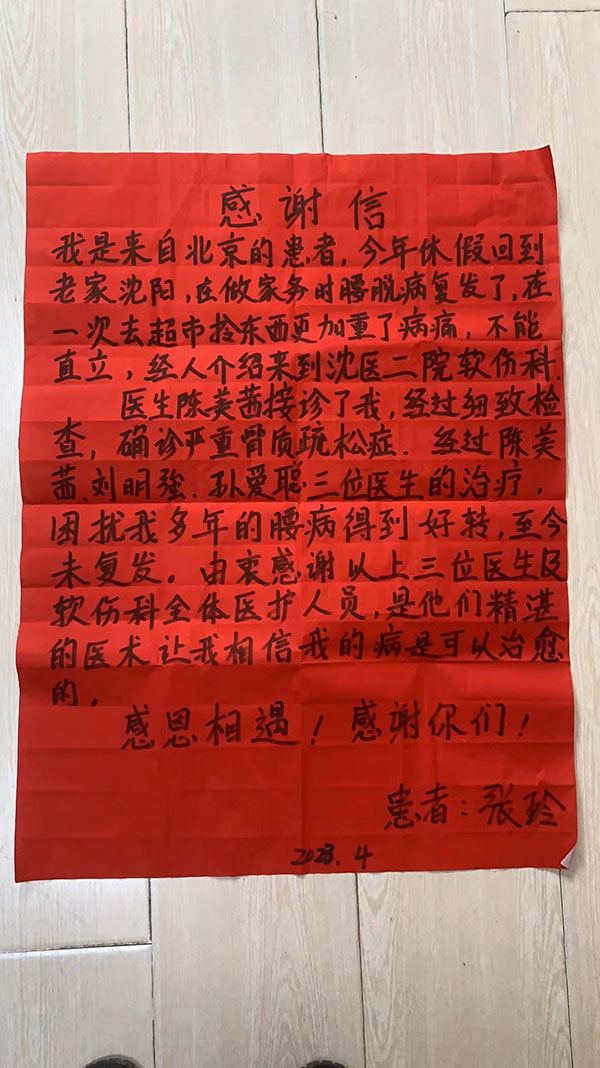 感谢信
我是来自北京的患者,今年休假回到
老家沈阳,在做家务时腰脱病复发了,在
一次去超市拎东西更加重了病痛,不能
直立,经人介绍来到沈医二院软伤科
医生陈美茜接诊了我,经过细致检
查,确诊严重骨质疏松症.经过陈美
茜、刘明强、孙爱聪三位医生的治疗,
困扰我多年的腰病得到好转,至今
未复发。由衷感谢以上三位医生及
软伤科全体医护人员,是他们精湛
的医术让我相信我的病是可以治愈
的。
感恩相遇!感谢你们!
患者:张玲
2023.4